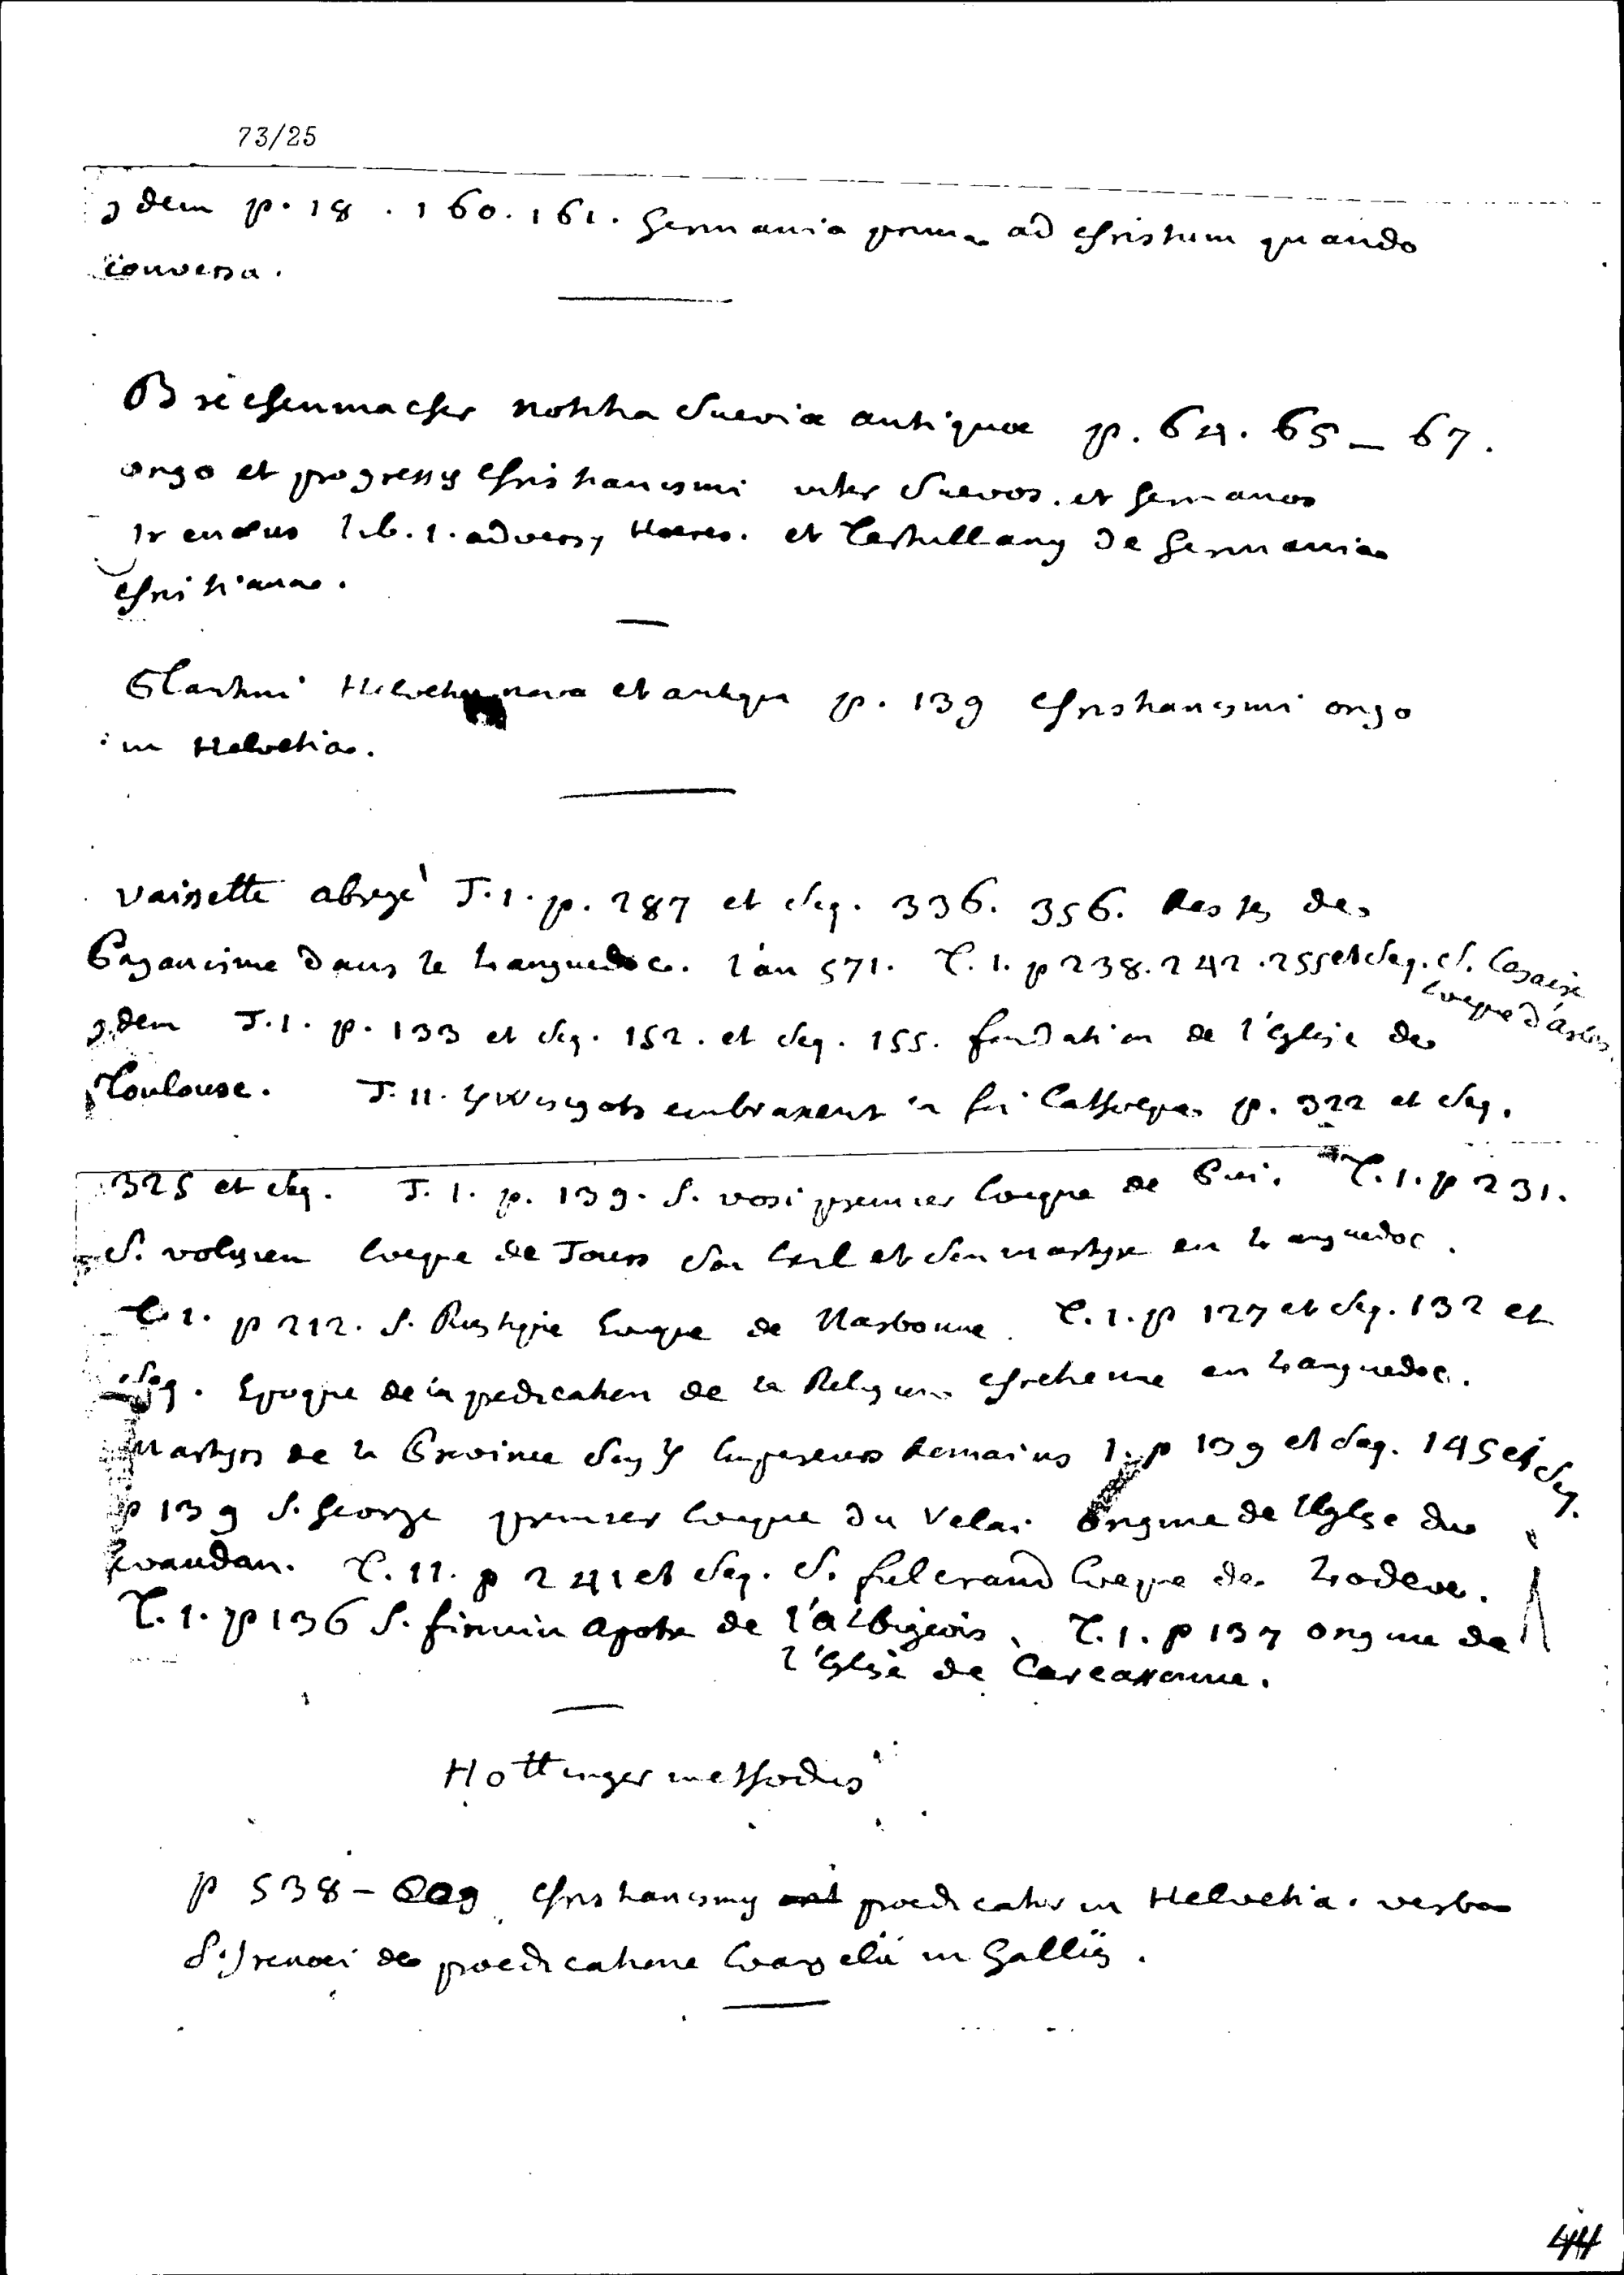 73/25
Idem p. 18. 160. 161. Germania prima ad Christum quando
conversa.
Breichenmacher notitia Sueviæ antiquæ p. 64. 65 _ 67.
origo et progressus Christianismi inter Suevos et Germanos
Irenæus lib. 1. adversus Hæres. et Tertullanus de Germania
Christiana.
Plantini Helvetia nova et antiqua p. 139 Christianismi origo
in Helvetia.
Vaissette abregé T. 1. p. 287 et seq. 336. 356. Restes de
Paganisme dans le Languedoc. l'an 571. T. 1. p 238. 242. 255 et seq. S. Cesaire
Eveque d'Arles.
Idem T. 1. p. 133 et seq. 152. et seq. 155. fondation de l'Eglise de
Toulouse. T. 11. les Wisigots embrassent la foi Catholique p. 322 et seq.
325 et seq. T. 1. p. 139. S. Vosi premier Eveque de Pui. T. 1. p 231.
S. Volusien Eveque de Tours son Exil et son martyre en Languedoc.
T. 1. p 212. S. Rustique Eveque de Narbonne. T. 1. p 127 et seq. 132 et
seq. Epoque de la predication de la Religion Chretienne en Languedoc.
Martyrs de la Province sous les Empereurs Romains 1. p 139 et seq. 145 et seq.
p 139 S. George premier Eveque du Velai Origine de l'Eglise du
Gevaudan. T. 11. p 241 et seq. S. fulcrand Eveque de Lodeve.
T. 1. p 136 S. firmin Apotre de l'Albigeois. T. 1. p 137 origine de
l'Eglise de Carcassonne.
Hottinger methodus
p 538 - Christianismus prædicatus in Helvetia. verba
S. Irenæi de prædicatione Evangelii in Galliis.
44